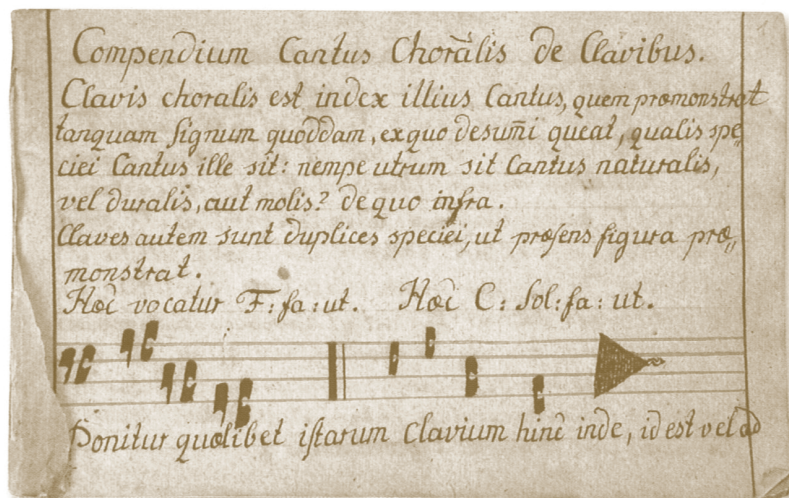 Compendium Cantus Chorãlis de Clavibus.
Clavis choralis est index illius Cantus, quem præmonstrat
tanquam signum quoddam, ex quo desum̃i queat, qualis spe„
ciei Cantus ille sit: nempe utrum sit Cantus naturalis,
vel duralis, aut molis? de quo infra.
Claves autem sunt duplices speciei, ut præsens figura præ„
monstrat.
Hæc vocatur F: fa: ut. Hæc C: Sol: fa: ut.
Ponitur quælibet istarum Clavium hinc inde, id est vel ad